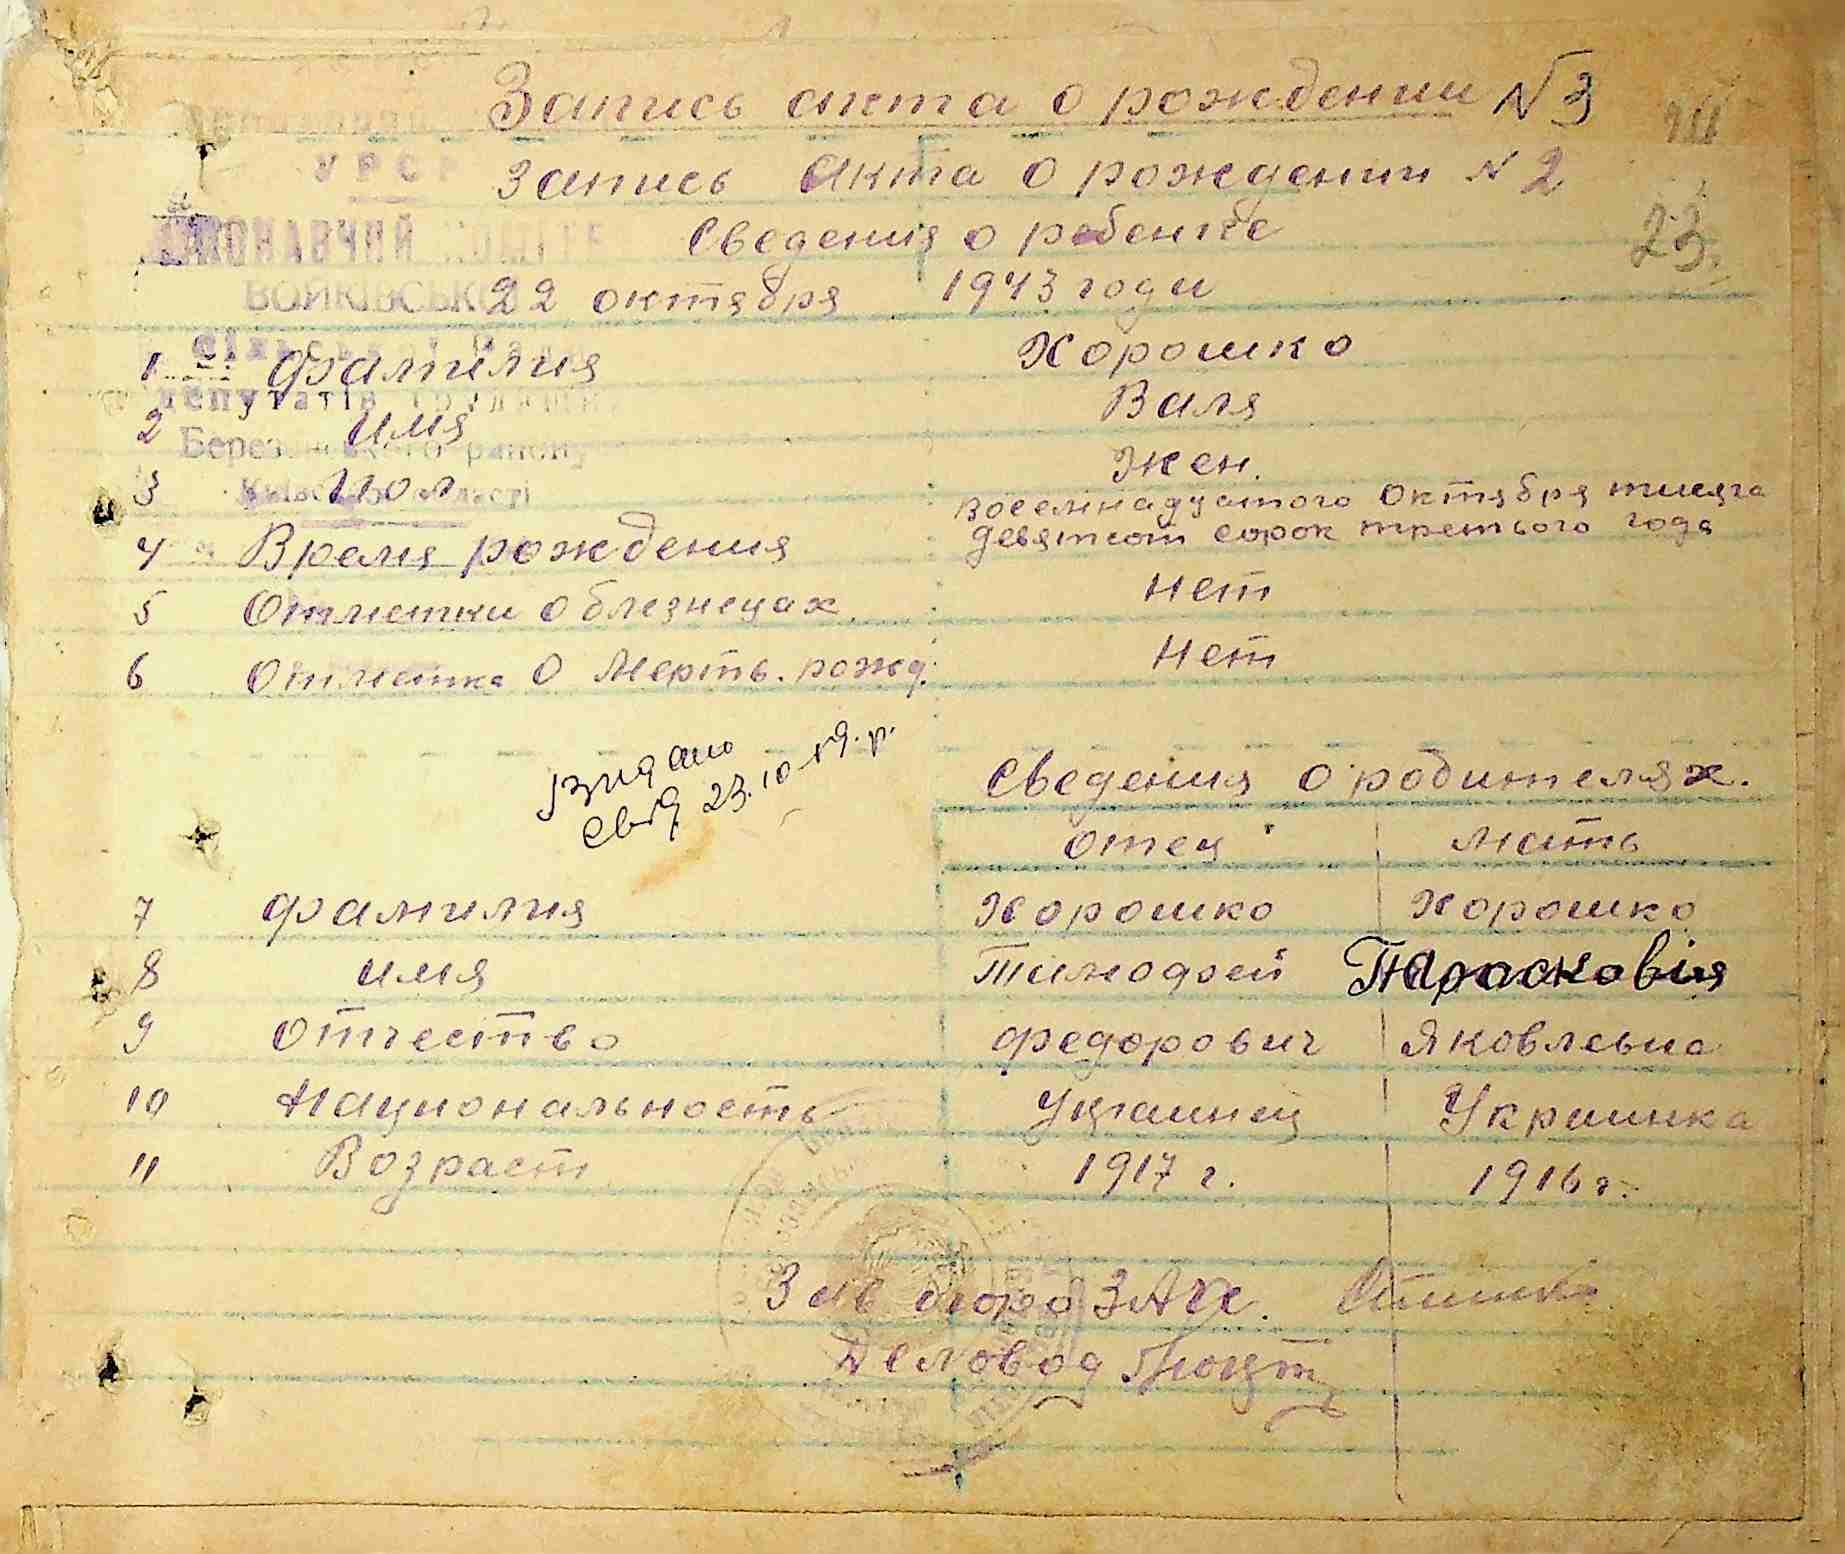 Запись акта о рождении N 3
Запись Акта о рождении N 2
Сведения о ребенке
23.
22 октября 1943 года
УРСР
ВОЙКІВСЬКО
депутатів
Київсько області
1 Фамилия Хорошко
2 имя Валя
3 Пол Жен.
4 Время рождения Восемнадцатого Октября тисяга
девятсот сорок третього года
5 Отметки о блезнецах Нет
6 Отметка о мерть. рожд. Нет
Видано
свід 23.10 49.р.
Сведения о родителях.
отец мать
7 фамилия Хорошко Хорошко
8 имя Тимофей Парасковія
9 отчество Федорович Яковлевна
10 Национальность Украинец Украинка
11 Возраст 1917 г. 1916 г.
Зав бюро ЗАГС.
Деловод